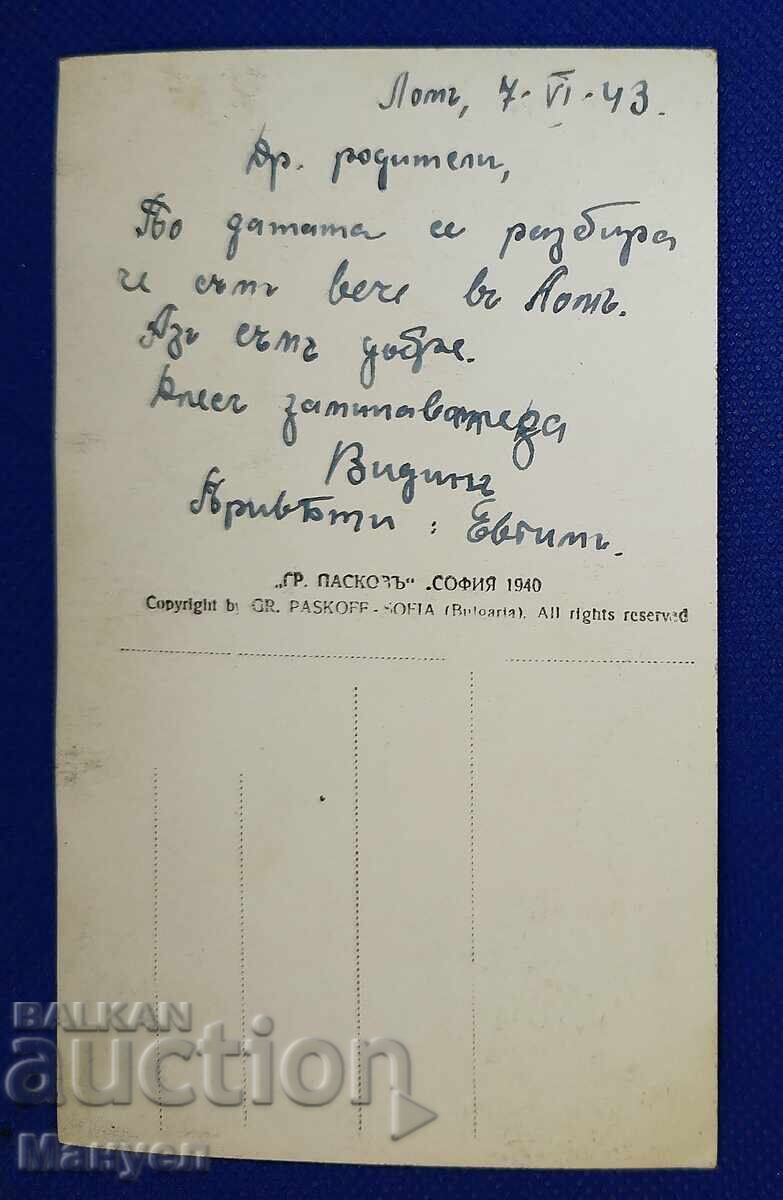 Ломъ, 7-VI-43.
Др. родители,
По датата се разбира
че съмъ вече въ Ломъ.
Азъ съмъ добре.
Днесъ за
Видинъ
Привѣти: Евтимъ.
„ГР. ПАСКОВЪ“ .СОФИЯ 1940
Copyright by GR. PASKOFF - SOFIA (Bulgaria). All rights reserved
BALKAN
auction
Мануел